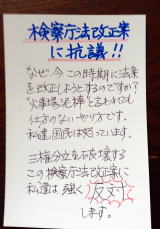 検察庁法改正案
に抗議!!
なぜ、今この時期に法案
を改正しようとするのですか?
"火事場泥棒"と言われても
仕方のないやり方です。
私達、国民は怒っています。
三権分立を破壊する
この検察庁法改正案に
私達は強く反対
します。